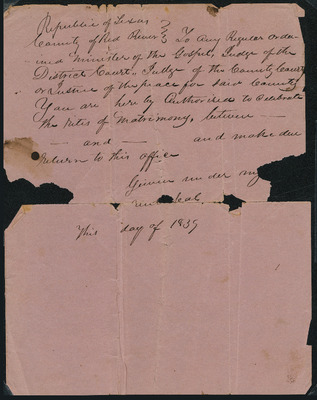 Republic of Texas
County of Red River } To Any Regular ordai
ned minister of the Gospel, Judge of the
District Court, Judge of the County Court
or Justice of the peace for said County
You are hereby Authorised to Celebrate
the Rites of Matrimony, between —
— and — and make due
Return to this office
Given under my
and seal
This day of 1839